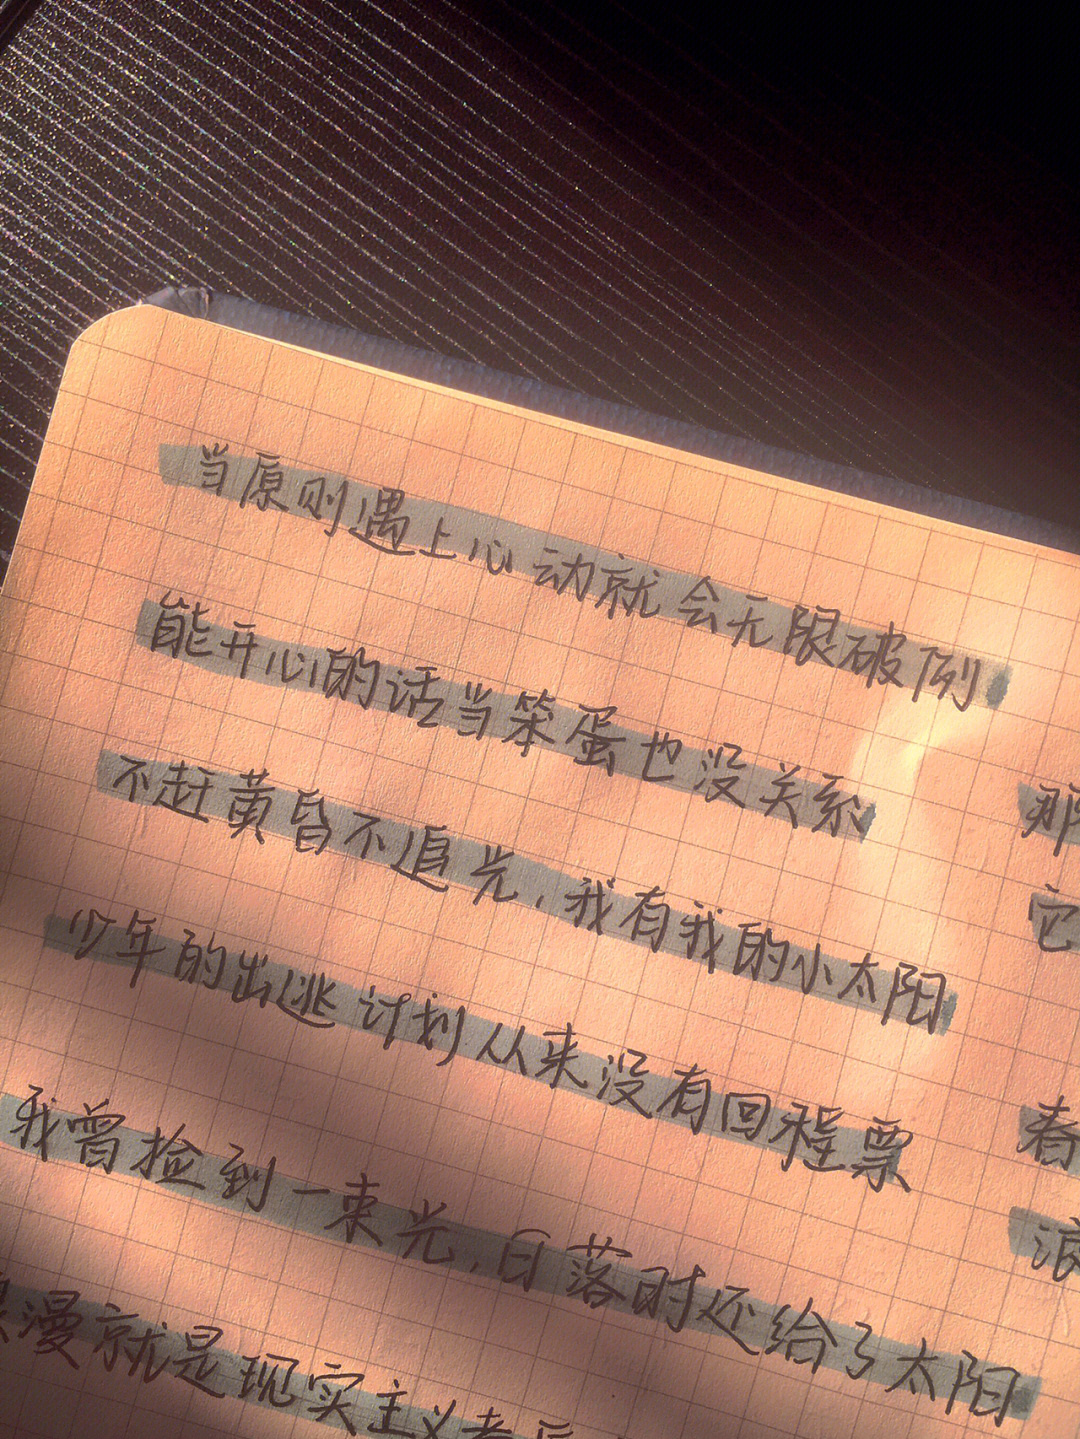 当原则遇上心动就会无限破例
能开心的话当笨蛋也没关系
不赶黄昏不追光，我有我的小太阳
少年的出逃计划从来没有回程票
我曾捡到一束光，日落时还给了太阳
浪漫就是现实主义者
那
它
春
浪